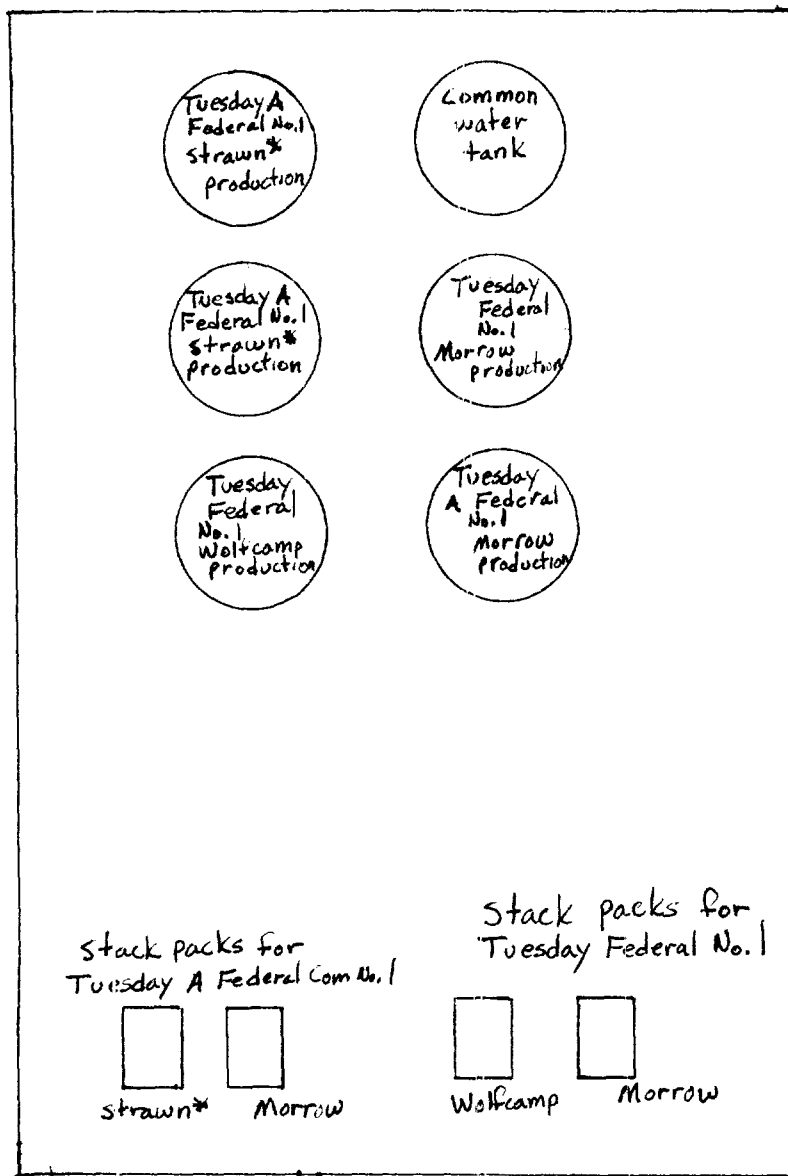 Tuesday A
Federal No.1
Strawn*
production
Common
water
tank
Tuesday A
Federal No.1
Strawn*
production
Tuesday
Federal
No.1
Morrow
production
Tuesday
Federal
No.1
Wolfcamp
production
Tuesday
A Federal
No.1
Morrow
production
Stack packs for
Tuesday A Federal Com No.1
Stack packs for
Tuesday Federal No.1
Strawn*
Morrow
Wolfcamp
Morrow